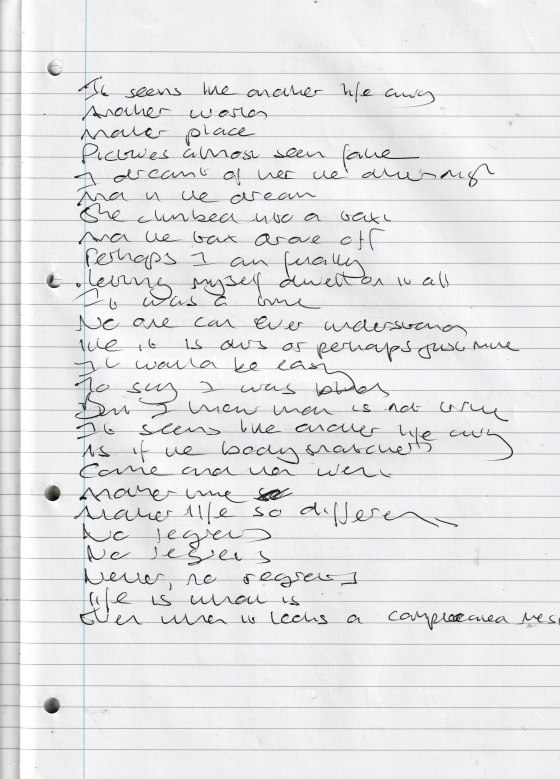 It seems like another life away
Another world
Another place
Pictures almost seem fake
I dreamt of her the other night
And in the dream
She climbed into a taxi
And the taxi drove off
Perhaps I am finally
letting myself dwell on it all
It was a time
No one can ever understand
like it is ours or perhaps just mine
It would be easy
To say I was blind
But I know that is not true
It seems like another life away
As if the bodysnatchers
Came and then went
Another time
Another life so different
No regrets
No regrets
Never, no regrets
life is what is
Even when it looks a complicated mess